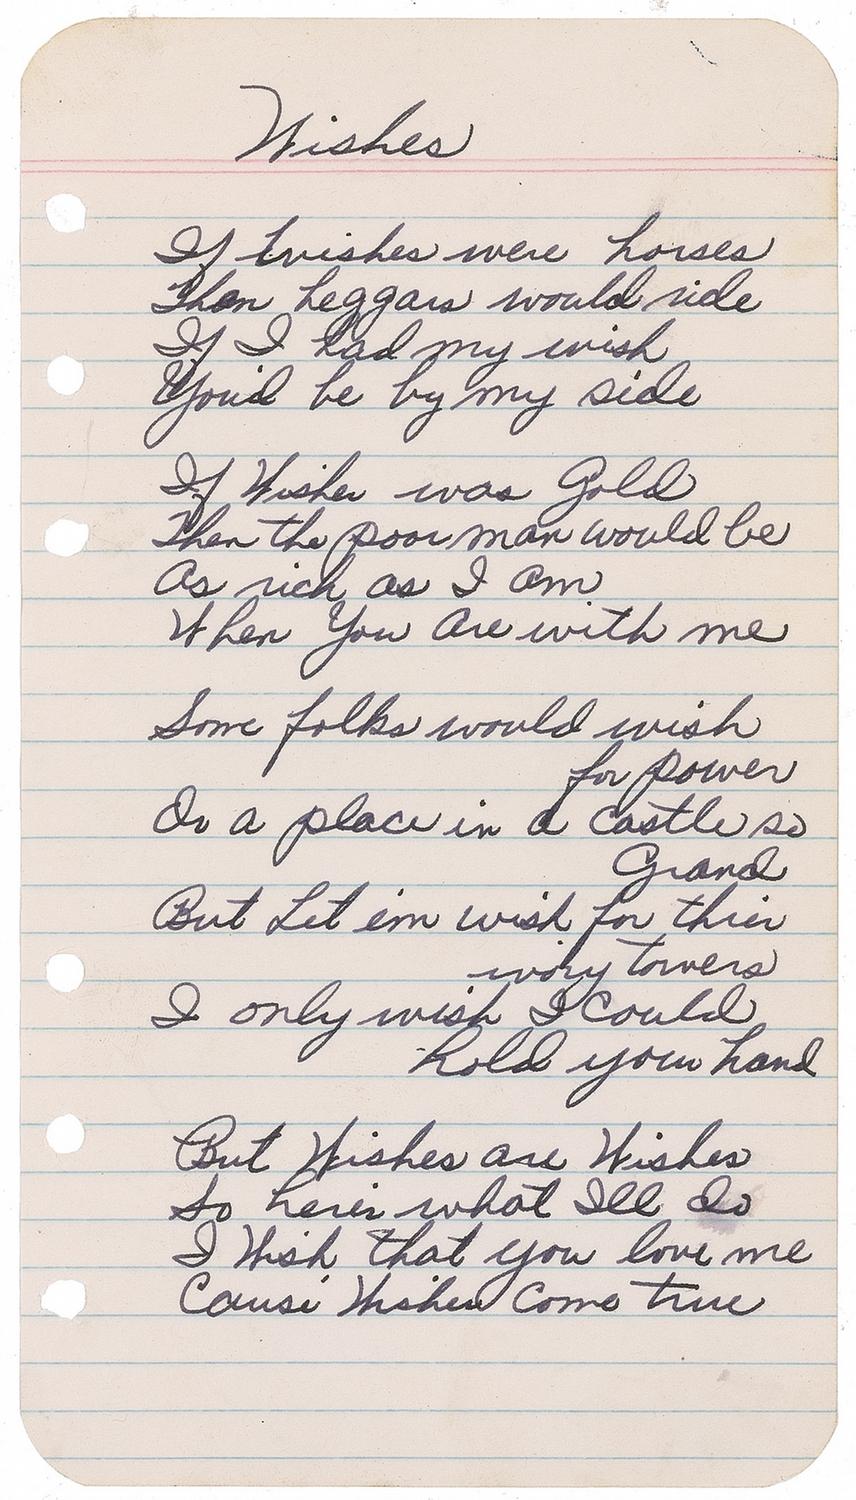 Wishes
If wishes were horses
Then beggars would ride
If I had my wish
You'd be by my side
If Wishes was Gold
Then the poor man would be
As rich as I am
When You Are with me
Some folks would wish
for power
Or a place in a castle so
Grand
But Let em wish for thier
ivory towers
I only wish I could
hold your hand
But Wishes are Wishes
So here's what Ill do
I Wish that you love me
Cause Wishes Come true